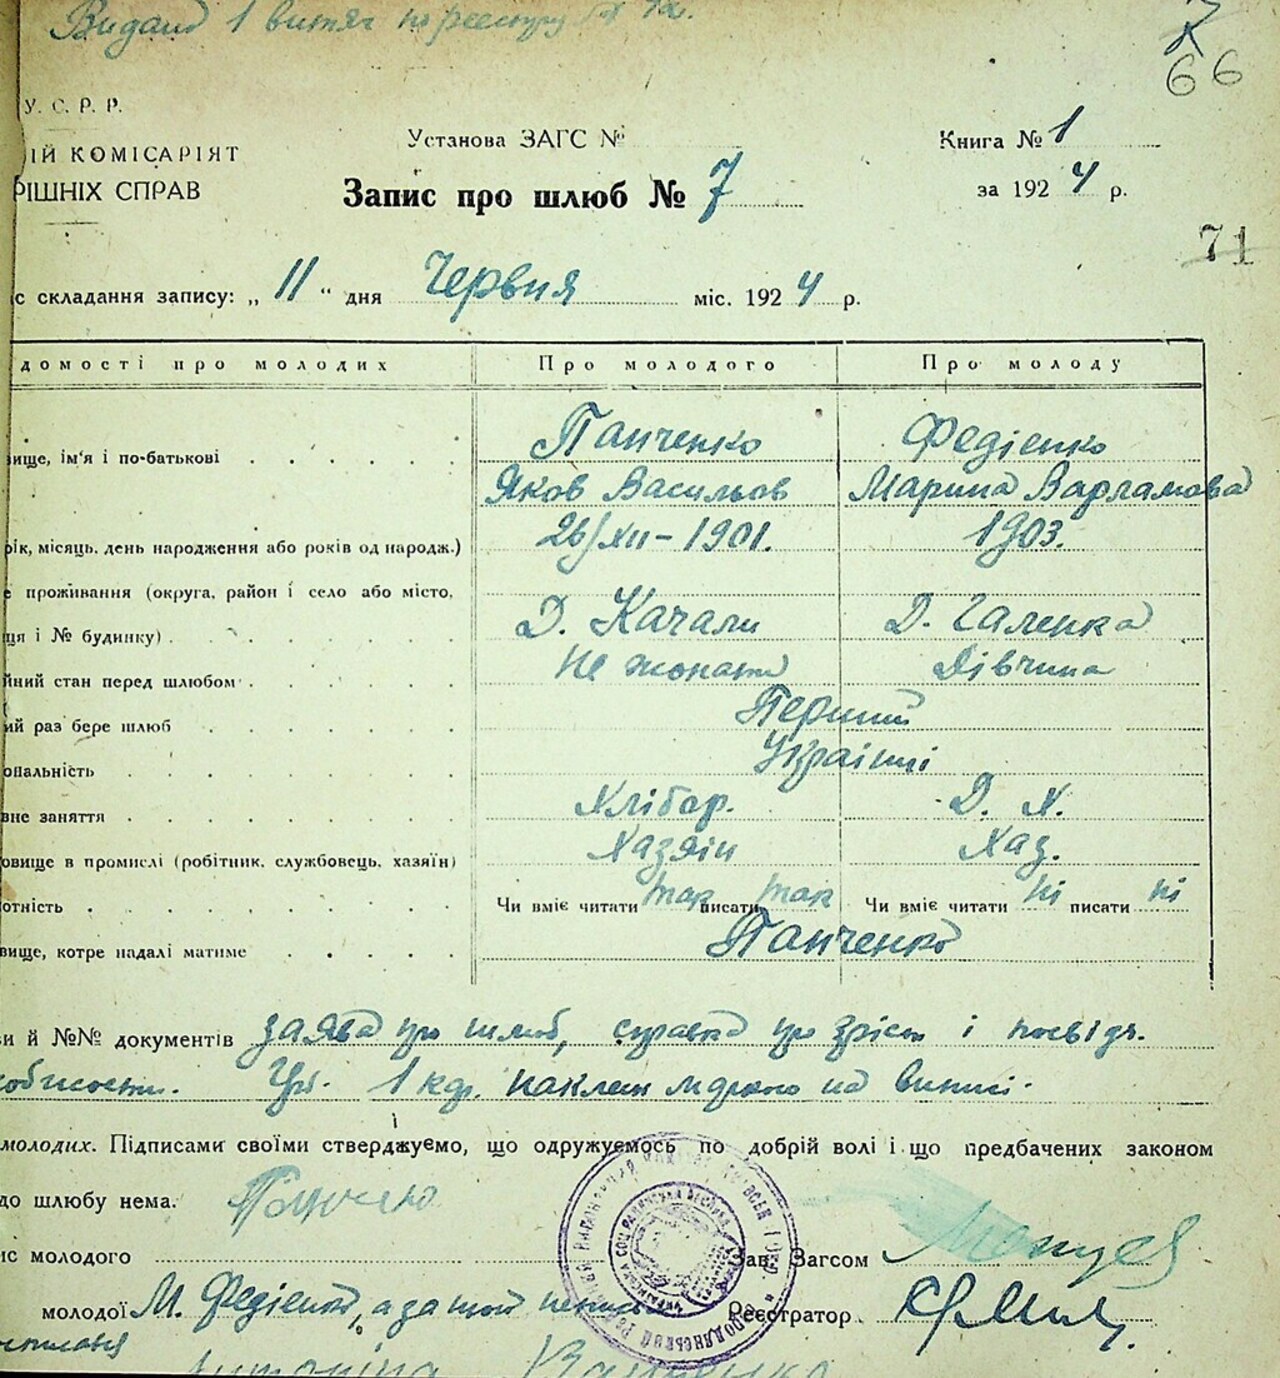 Видано 1 витяг по реєстру
7
66
У. С. Р. Р.
ІЙ КОМІСАРІЯТ
РІШНІХ СПРАВ
Установа ЗАГС №
Книга № 1
Запис про шлюб № 7
за 1924 р.
71
с складання запису: „ 11 “ дня Червня міс. 1924 р.
домості про молодих Про молодого Про молоду
вище, ім'я і по-батькові Панченко Федієнко
Яков Васильов Марина Варламова
рік, місяць, день народження або років од народж.) 26/XII – 1901. 1903.
е проживання (округа, район і село або місто,
ця і № будинку) Д. Качали Д. Галенка
йний стан перед шлюбом Не жонати Дівчина
ий раз бере шлюб Перший
ональність Українці
вне заняття Хлібор. Д. Х.
овище в промислі (робітник, службовець, хазяїн) Хазяїн Хаз.
отність Чи вміє читати так писати так Чи вміє читати ні писати ні
вище, котре надалі матиме Панченко
ви й №№ документів заява про шлюб, справка про зріст і посвідч.
собистости. 1 кр. наклеен маркою на виписі.
молодих. Підписами своїми стверджуємо, що одружуємось по добрій волі і що предбачених законом
до шлюбу нема.
ис молодого Зав. Загсом
молодої М. Федієнко, а за неї Реєстратор